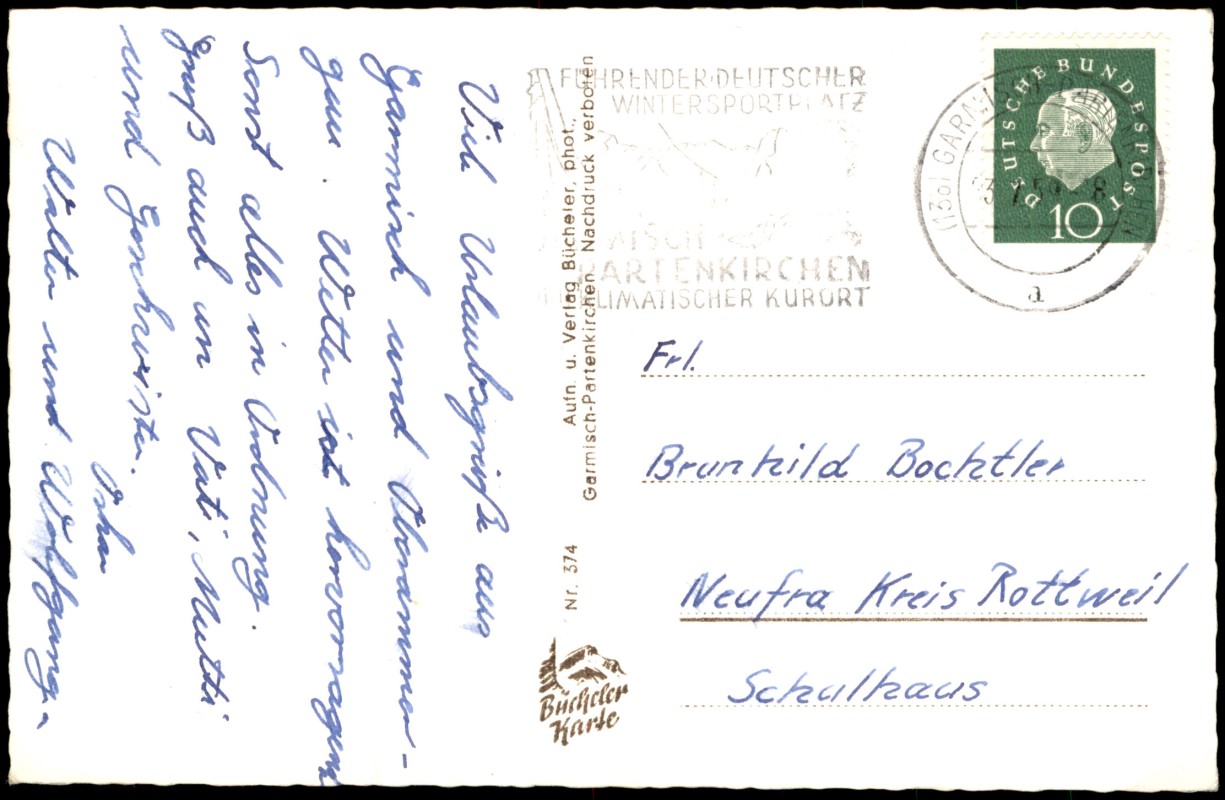 Viele Urlaubsgrüße aus
Garmisch und Oberammer-
gau. Wetter ist hervorragend
Sonst alles in Ordnung.
Gruß auch an Vati, Mutti
und Geschwister.
Oskar
Walter und Wolfgang.
FÜHRENDER DEUTSCHER
WINTERSPORTPLATZ
PARTENKIRCHEN
KLIMATISCHER KURORT
Aufn. u. Verlag Bücheler, phot.,
Garmisch-Partenkirchen Nachdruck verboten
Nr. 374
Bücheler
Karte
DEUTSCHE BUNDESPOST
10
(13b) GARMISCH-PARTENKIRCHEN
a
Frl.
Brunhild Bochtler
Neufra Kreis Rottweil
Schulhaus